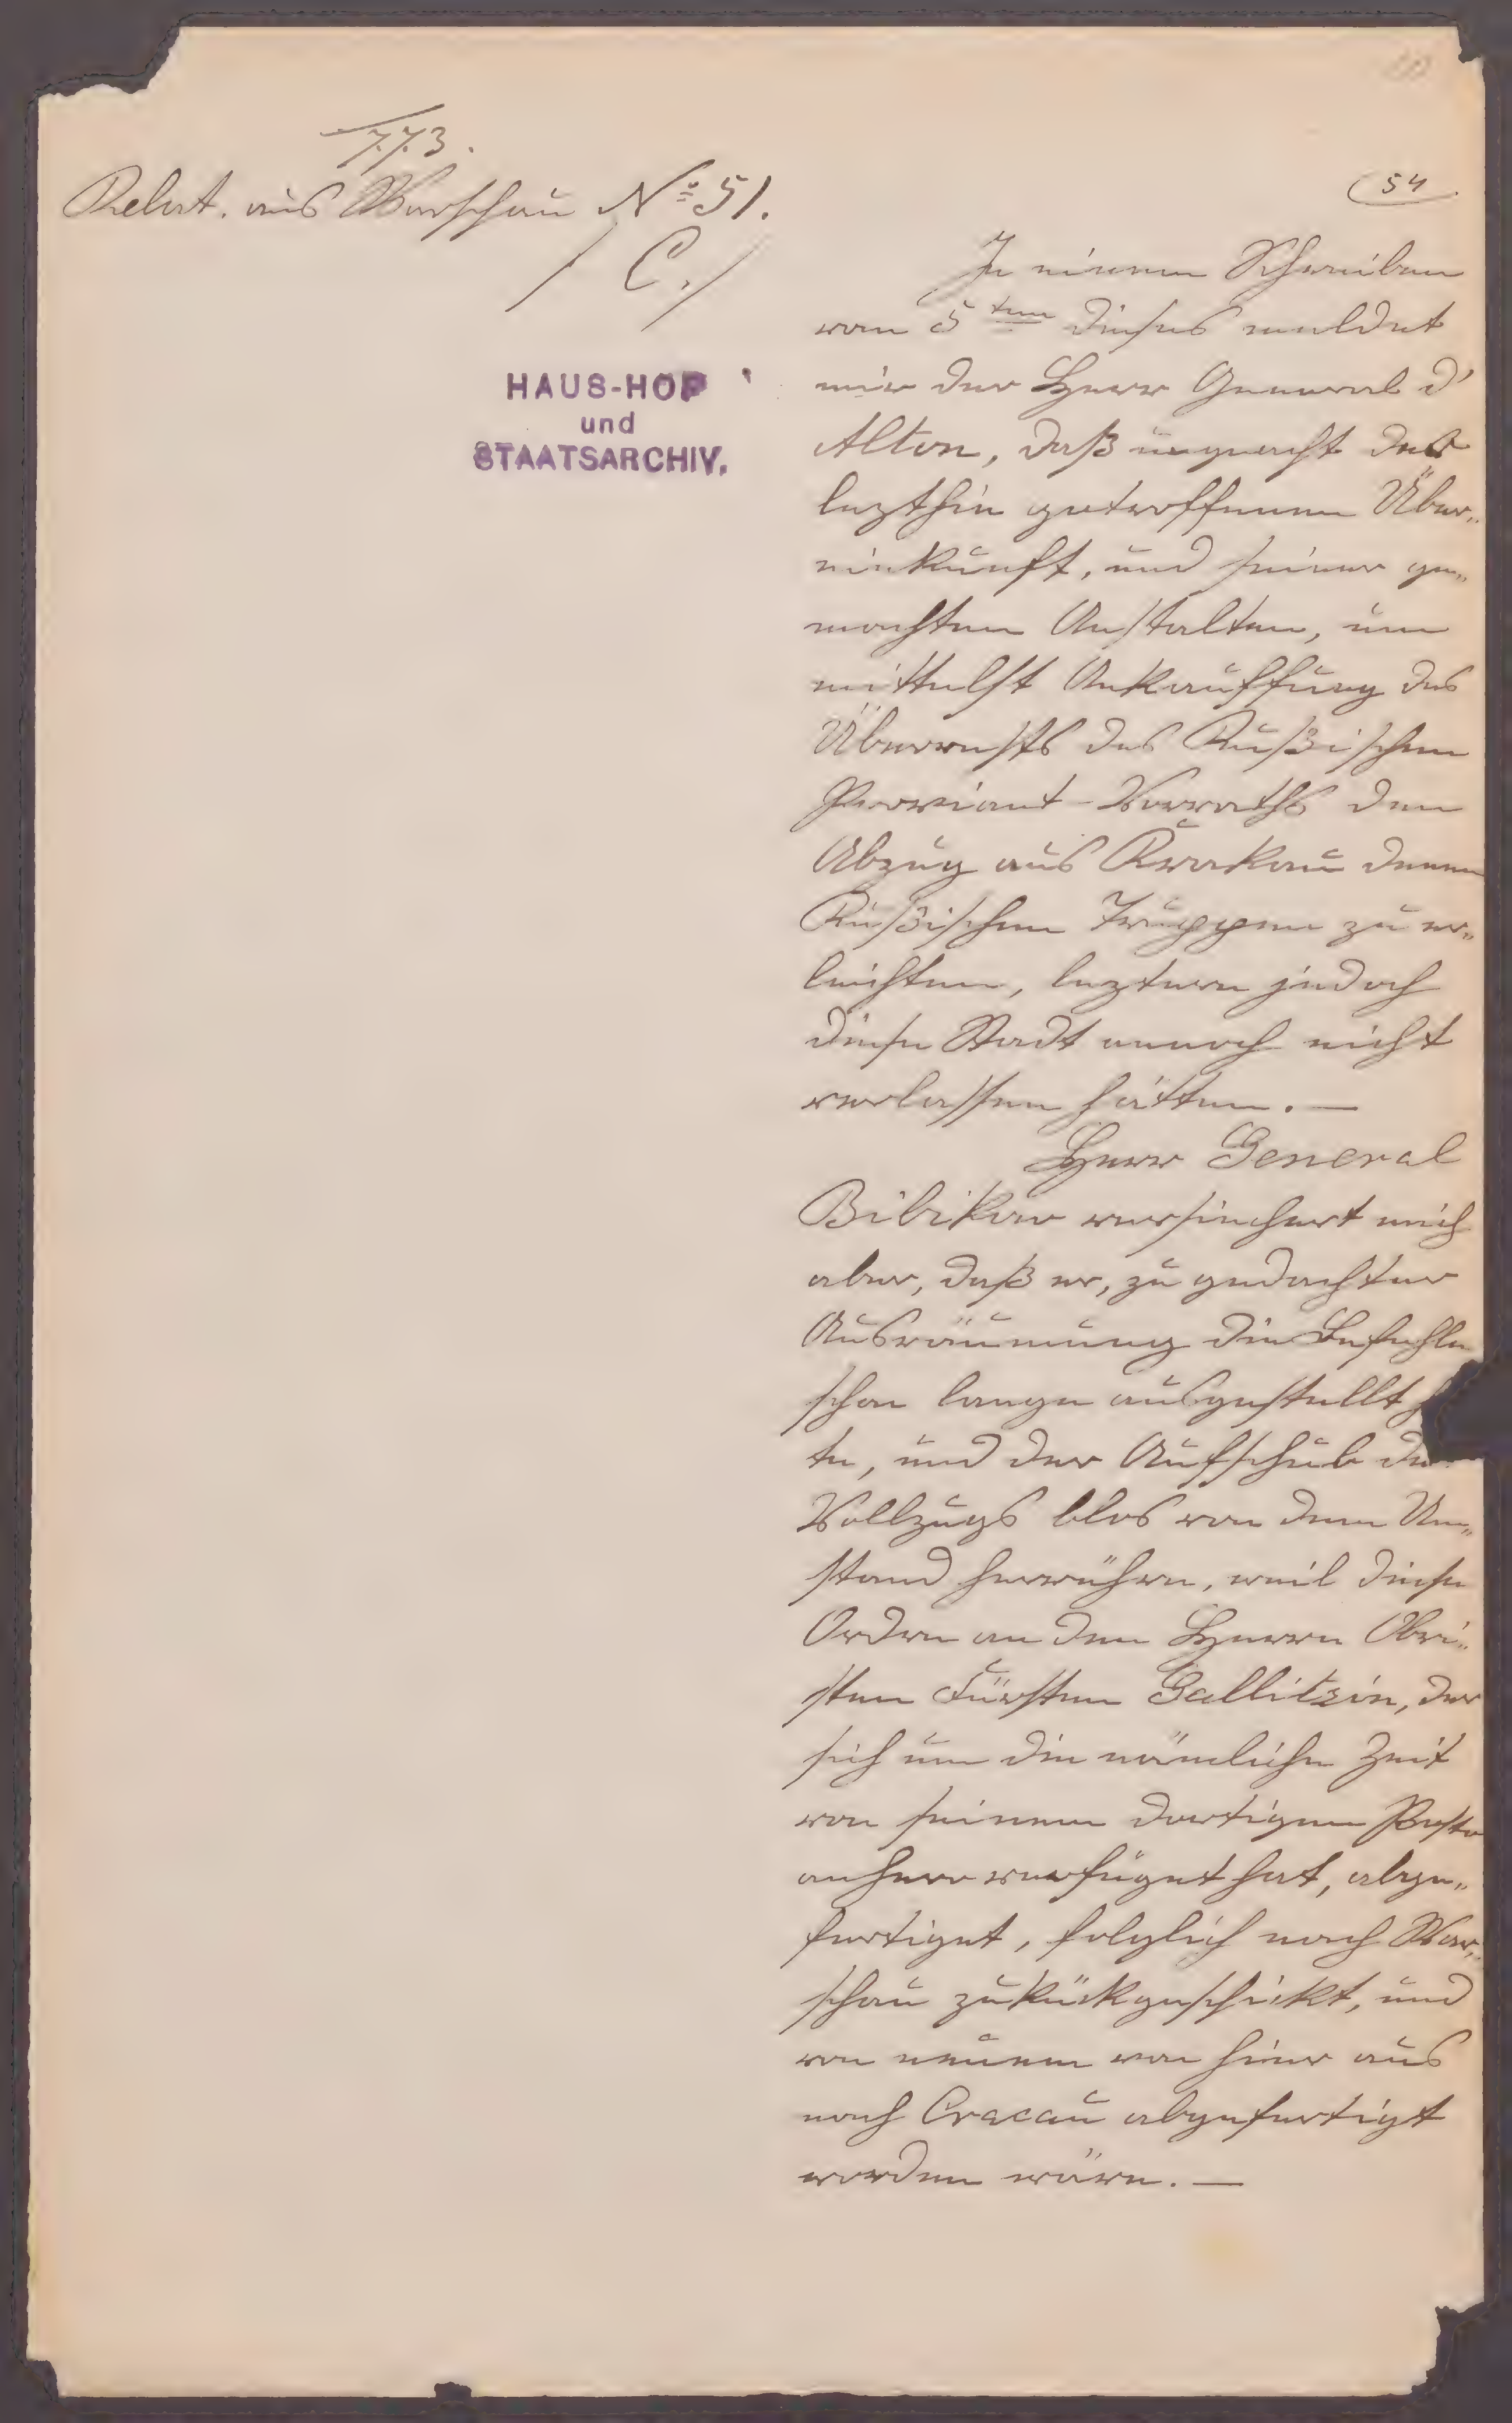 773.
Relat. aus Warschau No 51.
/ C. /
HAUS-HOF
und
STAATSARCHIV.
54
In einem Schreiben
vom 5ten dieses meldet
mir der Herr General d'
Alton, daß ungeacht der
lezthin getroffenen Über„
einkunft, und seiner ge„
machten Anstalten, um
mittelst Ankauffung des
Überrests des Rußischen
Proviant-Vorraths den
Abzug aus Krakau denen
Rußischen Truppen zu er„
leichten, leztere jedoch
diese Stadt annoch nicht
verlassen hätten. —
Herr General
Bibikow versichert mich
aber, daß er, zu gedachter
Ausräumung die Befehle
schon lange ausgestellt h
te, und der Aufschub des
Vollzugs blos von dem Um„
stand herrühre, weil diese
Ordre an den Herrn Obri„
sten Fürsten Gallitzin, der
sich um die nämliche Zeit
von seinem dortigen Posto
anhero verfüget hat, abge„
fertiget, folglich nach War„
schau zukückgeschickt, und
von neuem von hier aus
nach Cracau abgefertigt
worden wäre. —